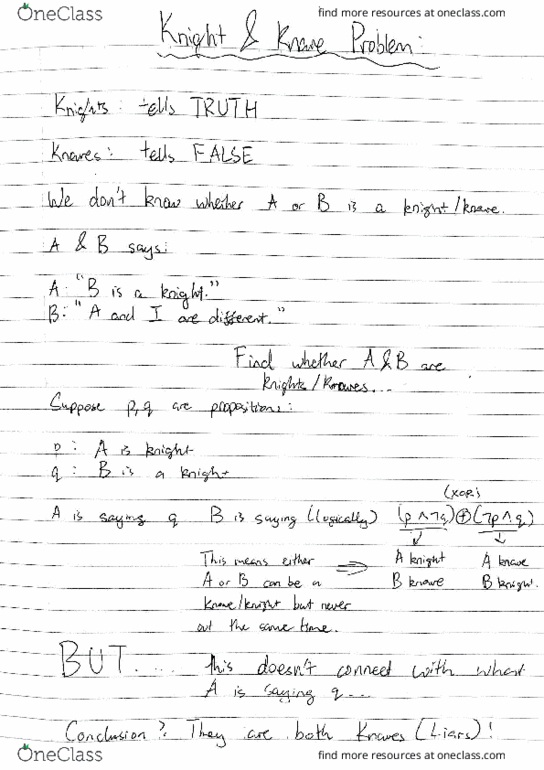 OneClass
find more resources at oneclass.com
Knight & Knave Problem:
Knights: tells TRUTH
Knaves: tells FALSE
We don't know whether A or B is a knight/knave.
A & B says:
A: "B is a knight."
B: "A and I are different."
Find whether A&B are
knights/knaves...
Suppose p,q are propositions:
p: A is knight
q: B is a knight
(XOR)
A is saying q B is saying (logically) (p ∧ ¬q) ⊕ (¬p ∧ q)
This means either ⇒ A knight A knave
A or B can be a B knave B knight.
knave/knight but never
at the same time.
BUT.... this doesn't connect with what
A is saying q...
Conclusion? They are both knaves (Liars)!
OneClass
find more resources at oneclass.com